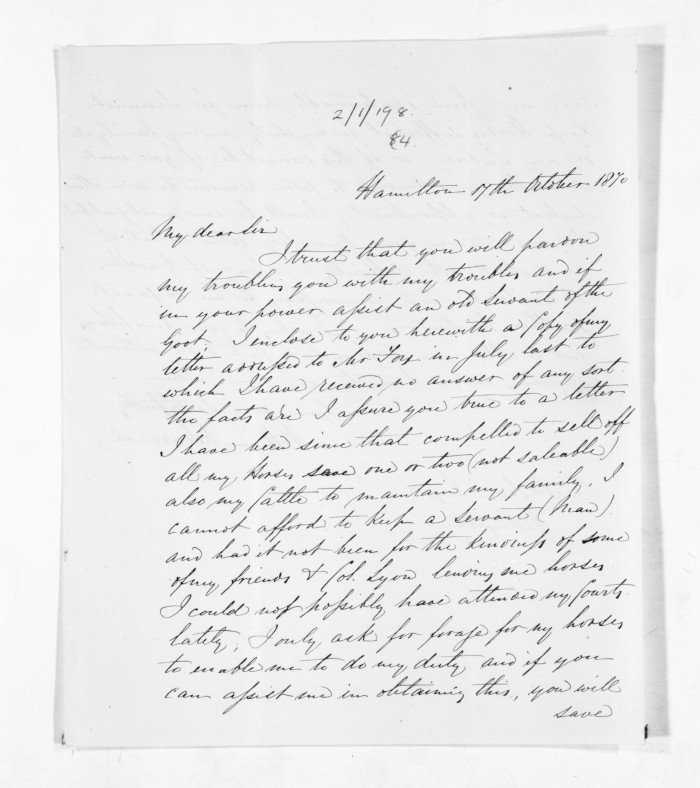 2/1/198.
84.
Hamilton 17th October 1870
My dear Sir
I trust that you will pardon
my troubling you with my troubles and if
in your power assist an old servant of the
Govt. I inclose to you herewith a Copy of my
letter addressed to Mr Fox in July last to
which I have received no answer of any sort.
the facts are I assure you true to a letter
I have been since that compelled to sell off
all my Horses save one or two (not saleable)
also my Cattle to maintain my family, I
cannot afford to keep a servant (Man)
and had it not been for the kindness of some
of my friends & Col. Lyon lending me horses
I could not possibly have attended my Courts
lately; I only ask for forage for my horses
to enable me to do my duty and if you
can assist me in obtaining this, you will
save